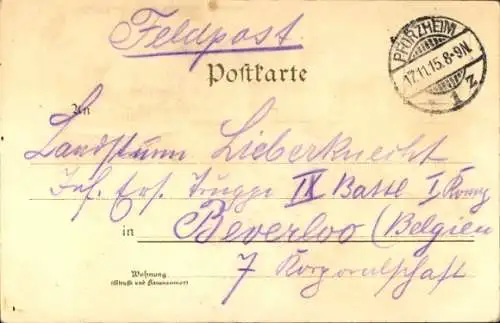 Feldpost.
Postkarte
PFORZHEIM
17.11.15.8-9N.
1 Z
An
Landsturm Lieberknecht
Inf. Ers. Truppe IX Battl I. Komp
in Beverloo (Belgien
7 Korporalschaft
Wohnung
(Straße und Hausnummer)